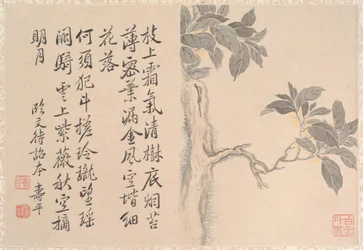 枝上霜氣清樹底烟苔
薄密葉漏金風空堦細
花落
何須犯斗槎玲瓏望瑤
闕騎雲上紫薇秋空摘
明月 臨文待詔本 壽平